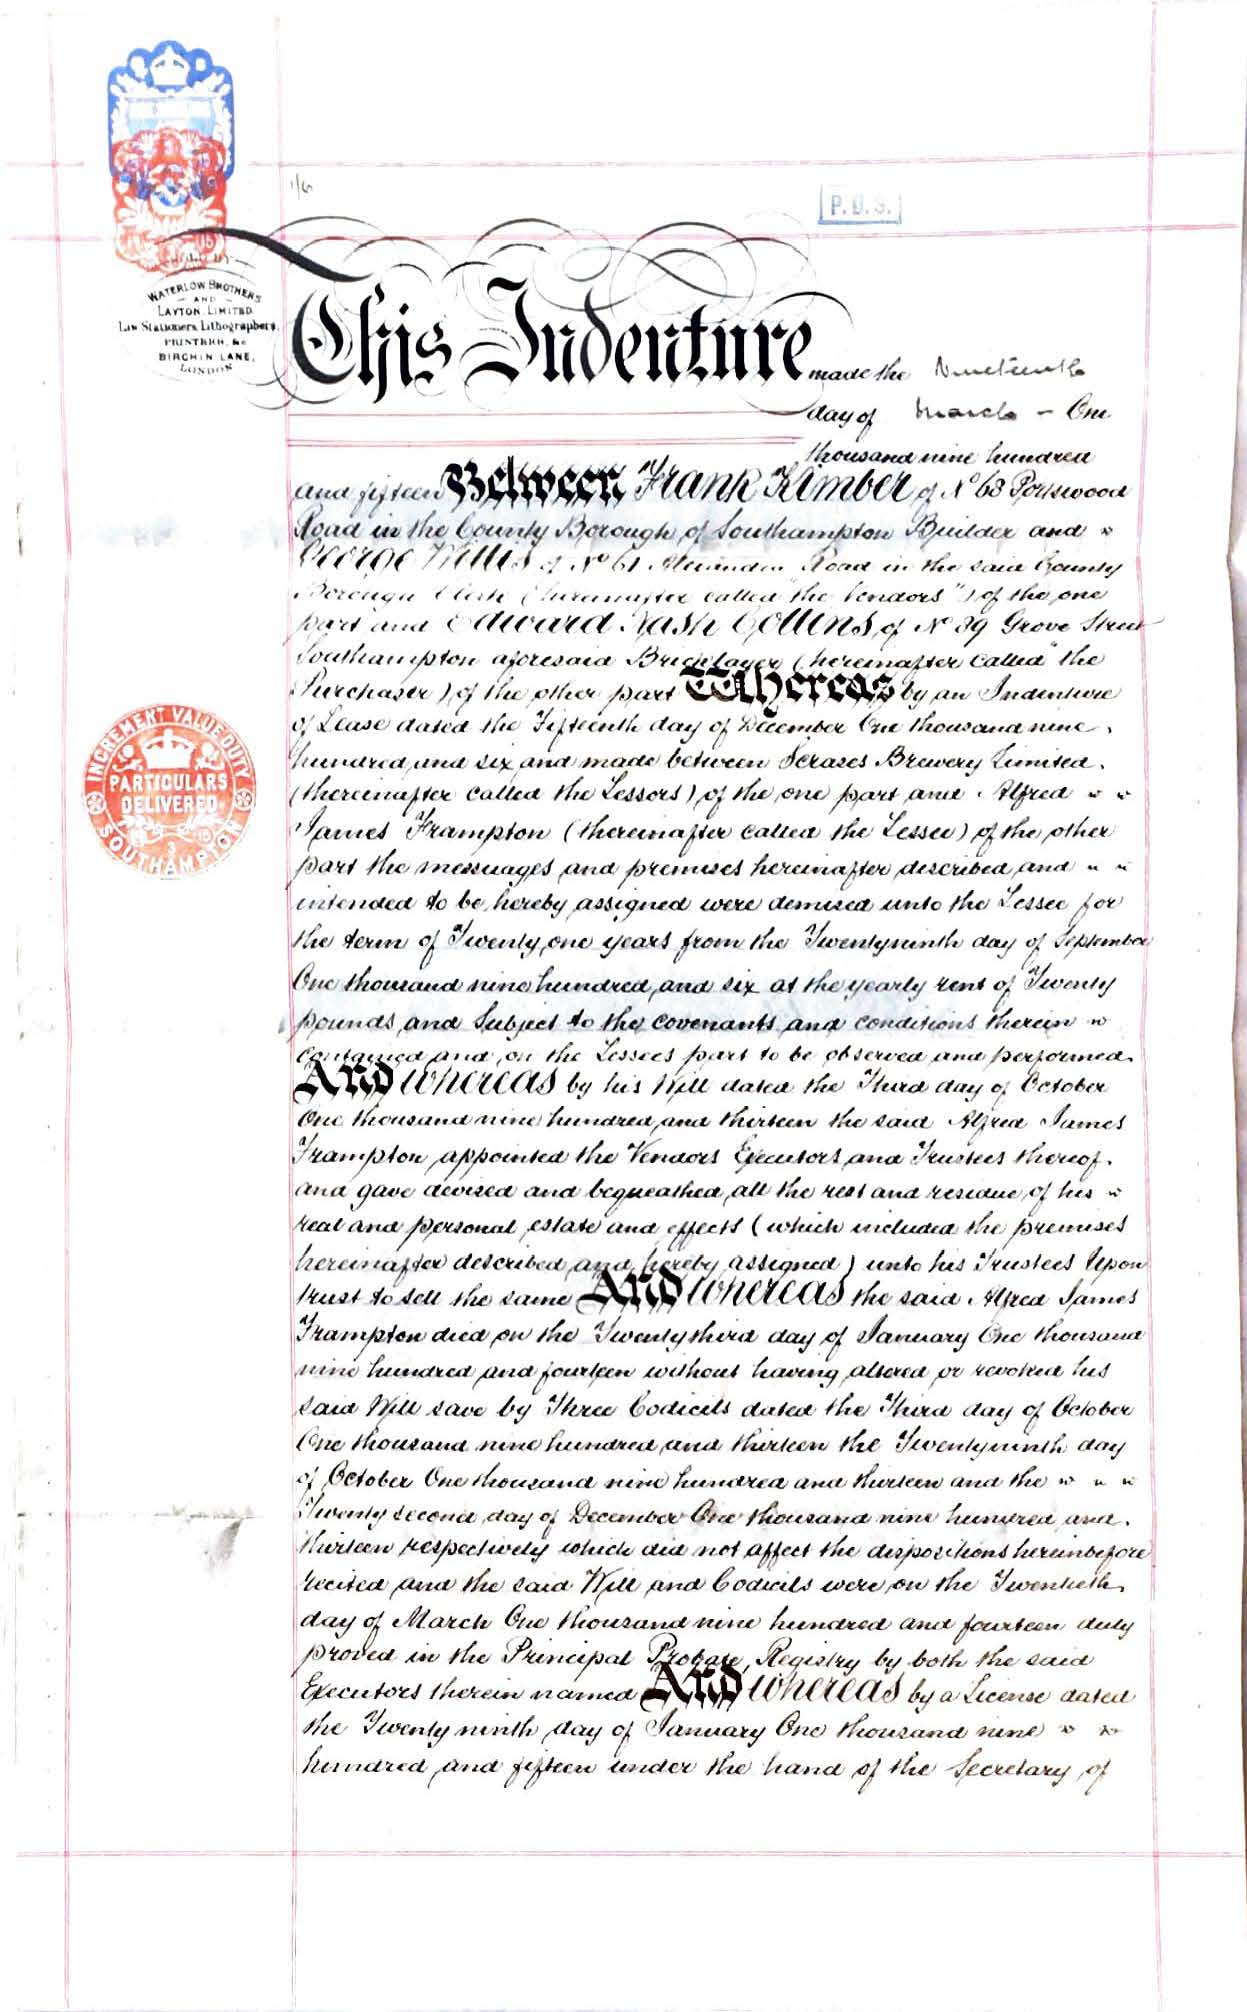 1/6
P.D.S.
WATERLOW BROTHERS
AND
LAYTON, LIMITED.
Law Stationers, Lithographers,
PRINTERS, &c
BIRCHIN LANE,
LONDON
This Indenture made the Nineteenth
day of March - One
thousand nine hundred
and fifteen Between Frank Kimber of No 68 Portswood
Road in the County Borough of Southampton Builder and
George Willis of No 61 Alexandra Road in the said County
Borough Clerk (hereinafter called "the Vendors") of the one
part and Edward Nash Collens of No 89 Grove Street
Southampton aforesaid Bricklayer (hereinafter called "the
Purchaser) of the other part Whereas by an Indenture
of Lease dated the Fifteenth day of December One thousand nine
hundred and six and made between Scrases Brewery Limited
(thereinafter called the Lessors) of the one part and Alfred
James Frampton (thereinafter called the Lessee) of the other
part the messuages and premises hereinafter described and
intended to be hereby assigned were demised unto the Lessee for
the term of Twenty one years from the Twentyninth day of September
One thousand nine hundred and six at the yearly rent of Twenty
pounds and Subject to the covenants and conditions therein
contained and on the Lessees part to be observed and performed
And whereas by his Will dated the Third day of October
One thousand nine hundred and thirteen the said Alfred James
Frampton appointed the Vendors Executors and Trustees thereof
and gave devised and bequeathed all the rest and residue of his
real and personal estate and effects (which included the premises
hereinafter described and hereby assigned) unto his Trustees Upon
trust to sell the same And whereas the said Alfred James
Frampton died on the Twenty third day of January One thousand
nine hundred and fourteen without having altered or revoked his
said Will save by Three Codicils dated the Third day of October
One thousand nine hundred and thirteen the Twentyninth day
of October One thousand nine hundred and thirteen and the
Twenty second day of December One thousand nine hundred and
thirteen respectively which did not affect the dispositions hereinbefore
recited and the said Will and Codicils were on the Twentieth
day of March One thousand nine hundred and fourteen duly
proved in the Principal Probate Registry by both the said
Executors therein named And whereas by a License dated
the Twenty ninth day of January One thousand nine
hundred and fifteen under the hand of the Secretary of
INCREMENT VALUE DUTY
PARTICULARS
DELIVERED
SOUTHAMPTON